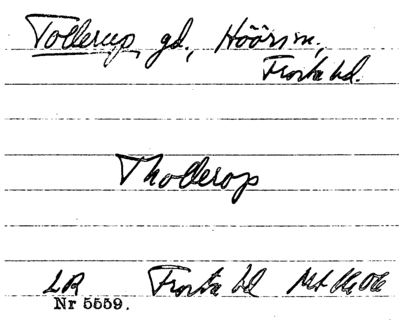 Tollerup, gd., Höörs sn.,
Frosta hd.
Thollerop
LR Frosta hd
Nr 5559.